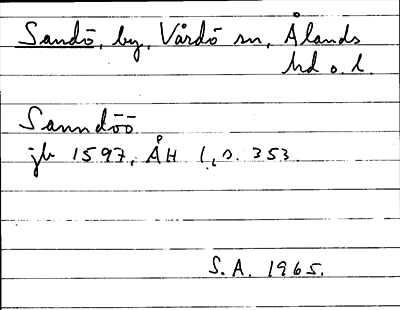 Sandö, by, Vårdö sn, Ålands
hd o. l.
Sanndöö
jb 1597, ÅH 1, s. 353.
S.A. 1965.